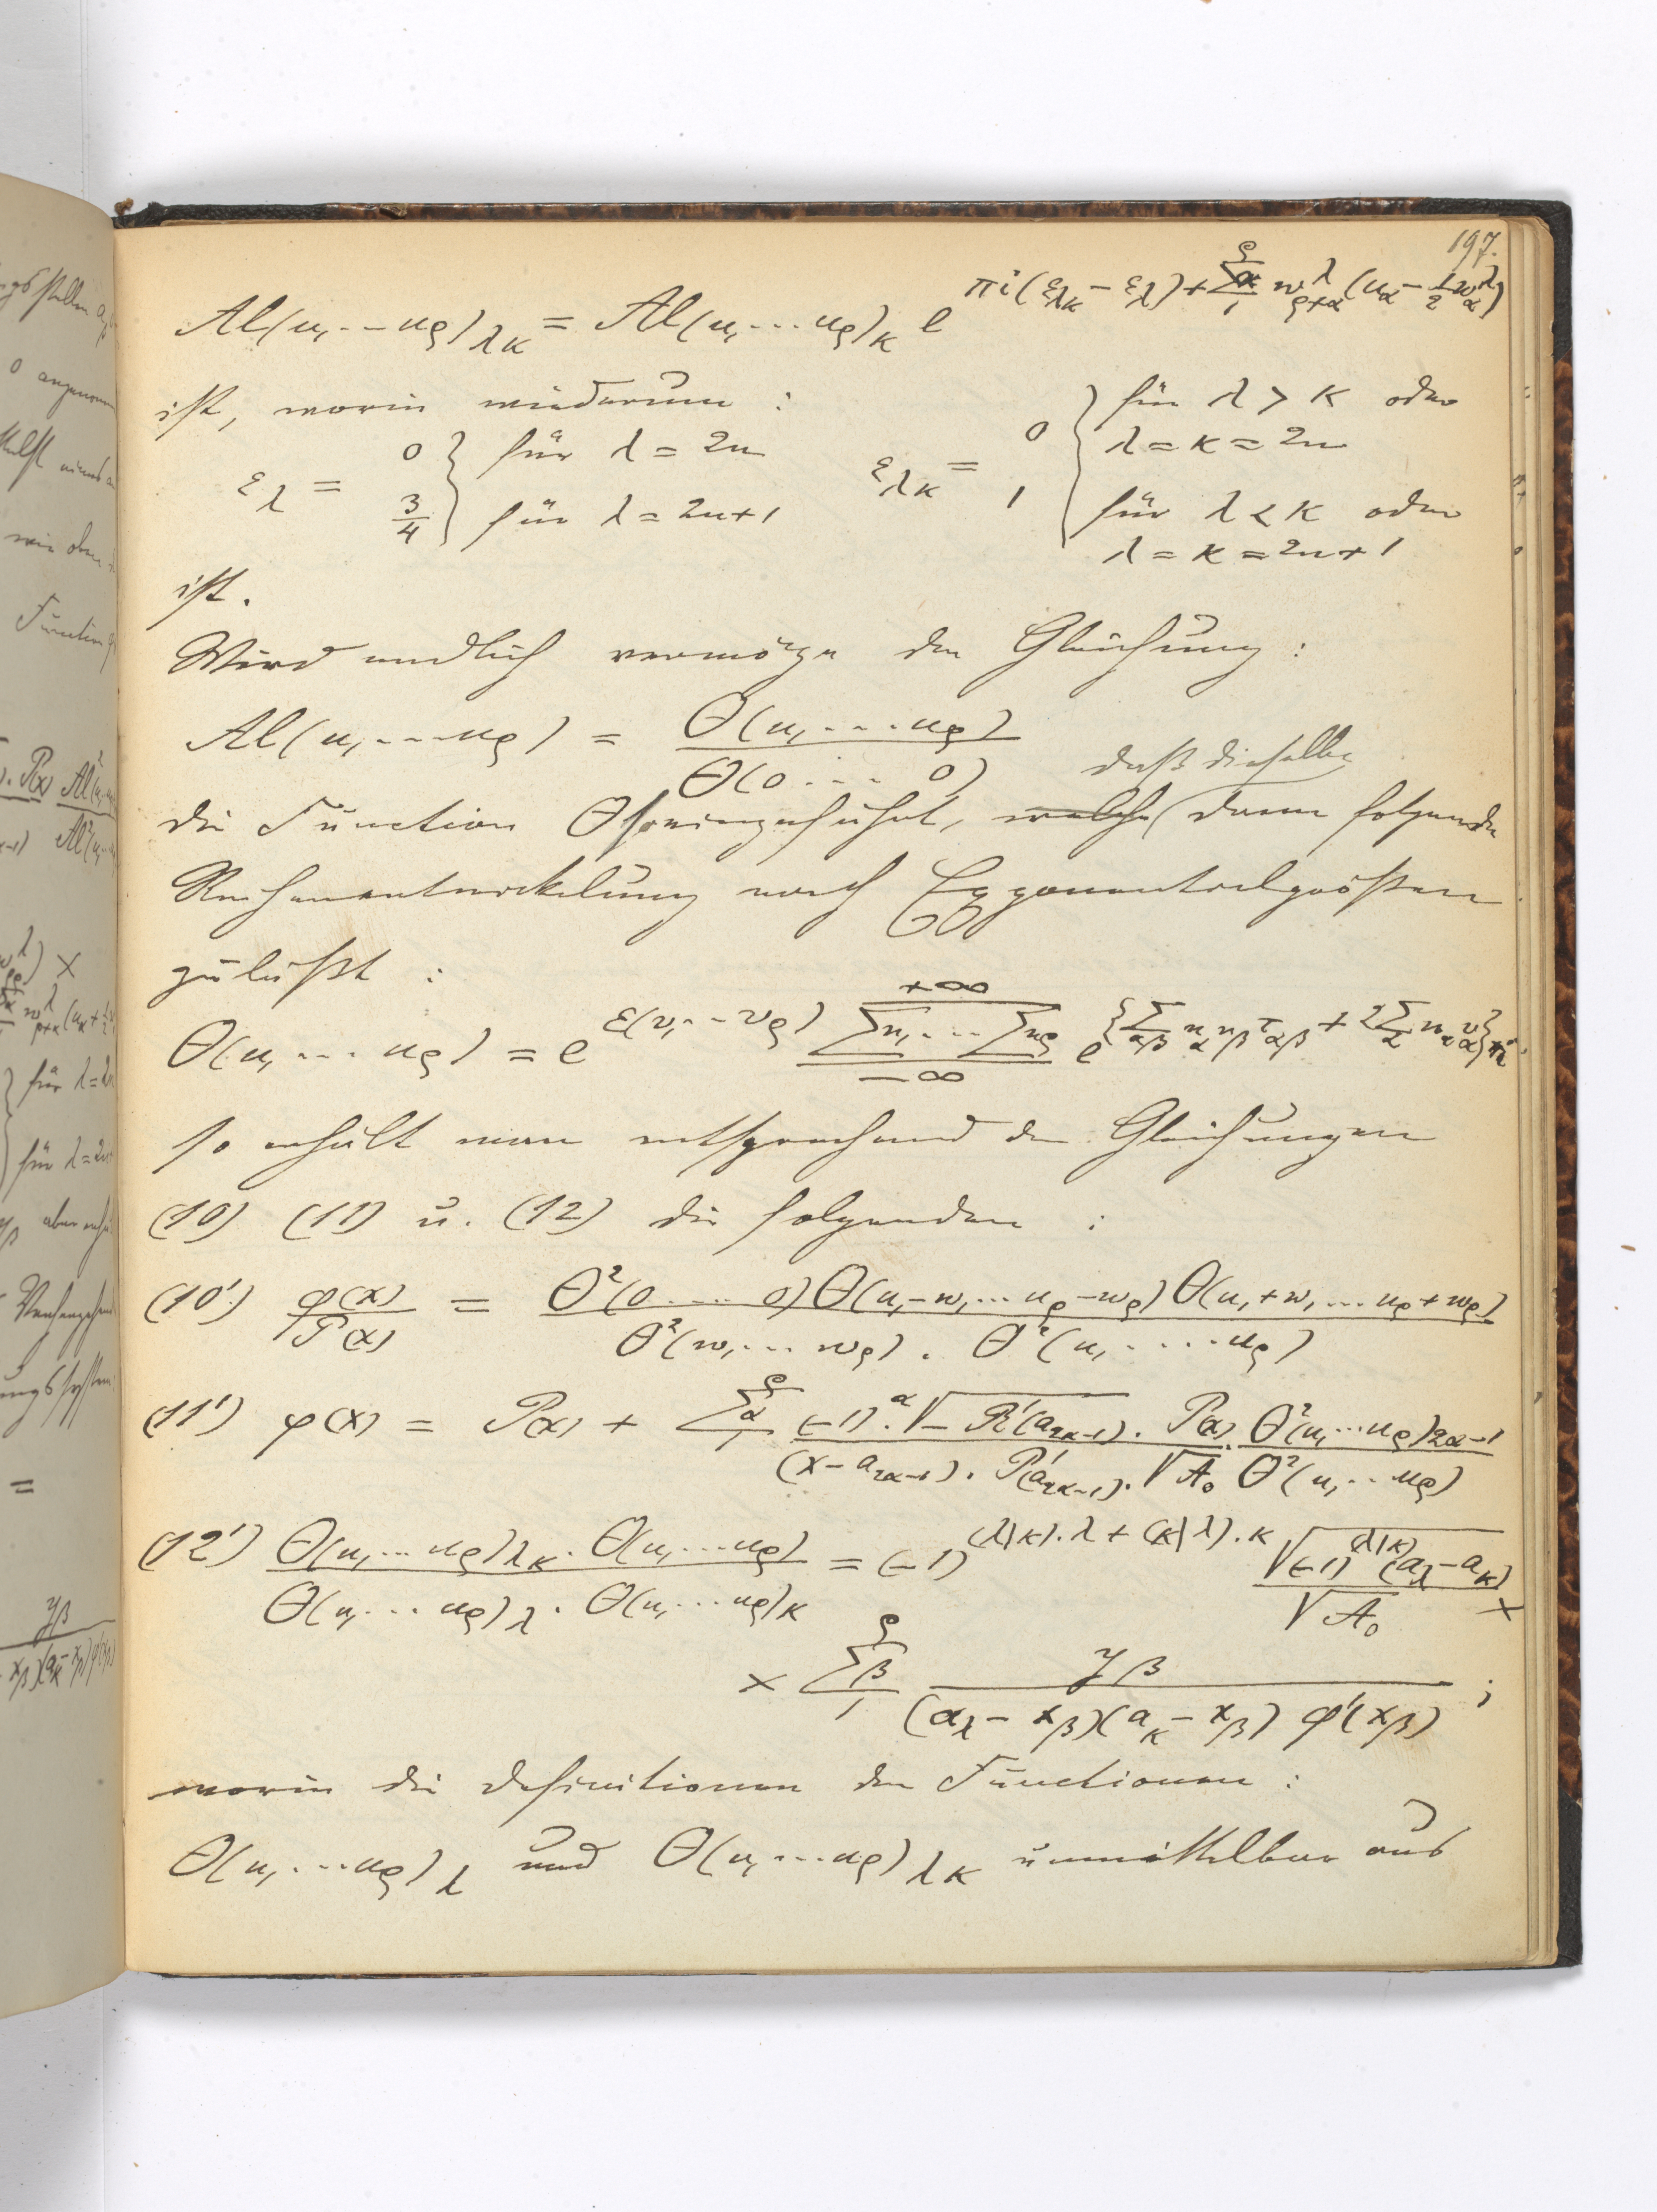 197.
Al(u₁ … u_ρ)_λκ = Al(u₁ … u_ρ)_κ e^{πi(ε_λκ − ε_λ) + Σ_α₁^ρ w^λ_{ρ+α} (u_α − ½ w^λ_α)}
ist, worin wiederum :
ε_λ = { 0 für λ = 2n ; ¾ für λ = 2n+1    ε_λκ = { 0 für λ > κ oder λ = κ = 2n ; 1 für λ < κ oder λ = κ = 2n+1
ist.
Wird endlich vermöge der Gleichung :
Al(u₁ … u_ρ) = Θ(u₁ … u_ρ) / Θ(0 … 0)
daß dieselbe
die Function Θ so eingeführt, welche dann folgende
Reihenentwickelung nach Exponentialgrößen
zuläßt :
Θ(u₁ … u_ρ) = e^{ε(v₁ … v_ρ)} Σn₁ … Σn_ρ_{−∞}^{+∞} e^{{Σ_αβ n_α n_β τ_αβ + 2Σ_α n_α v_α}πi}
so erhält man entsprechend den Gleichungen
(10) (11) u. (12) die folgenden :
(10') φ(x) / P(x) = Θ²(0 … 0) Θ(u₁−w₁ … u_ρ−w_ρ) Θ(u₁+w₁ … u_ρ+w_ρ) / Θ²(w₁ … w_ρ) . Θ²(u₁ … u_ρ)
(11') φ(x) = P(x) + Σ_α₁^ρ (−1)^α . √−R'(a_{2α−1}) . P(x) / (x − a_{2α−1}) . P'(a_{2α−1}) . √A₀ . Θ²(u₁ … u_ρ)_{2α−1} / Θ²(u₁ … u_ρ)
(12') Θ(u₁ … u_ρ)_λκ . Θ(u₁ … u_ρ) / Θ(u₁ … u_ρ)_λ . Θ(u₁ … u_ρ)_κ = (−1)^{(λ|κ).λ + (κ|λ).κ} √(−1)^{(λ|κ)} (a_λ − a_κ) / √A₀ ×
× Σ_β₁^ρ y_β / (a_λ − x_β)(a_κ − x_β) φ'(x_β) ;
worin die Definitionen der Functionen :
Θ(u₁ … u_ρ)_λ und Θ(u₁ … u_ρ)_λκ unmittelbar aus